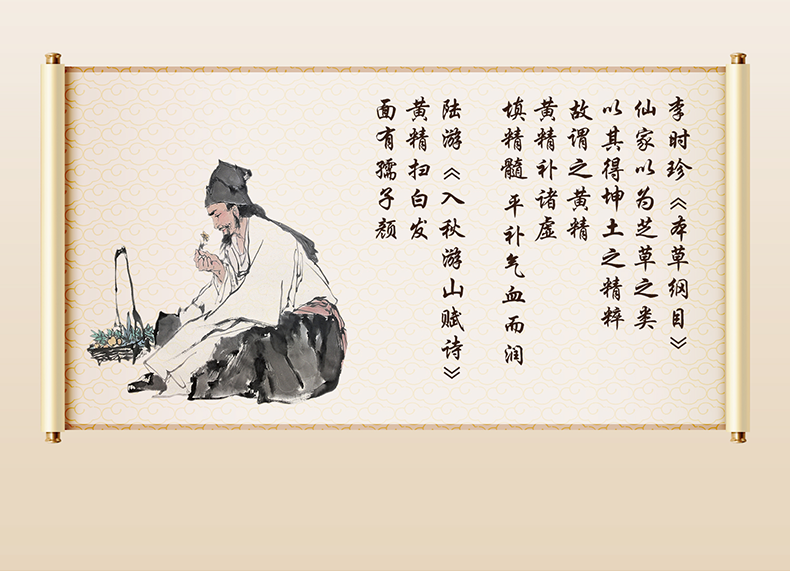 李时珍《本草纲目》
仙家以为芝草之类
以其得坤土之精粹
故谓之黄精
黄精补诸虚
填精髓 平补气血而润
陆游《入秋游山赋诗》
黄精扫白发
面有孺子颜